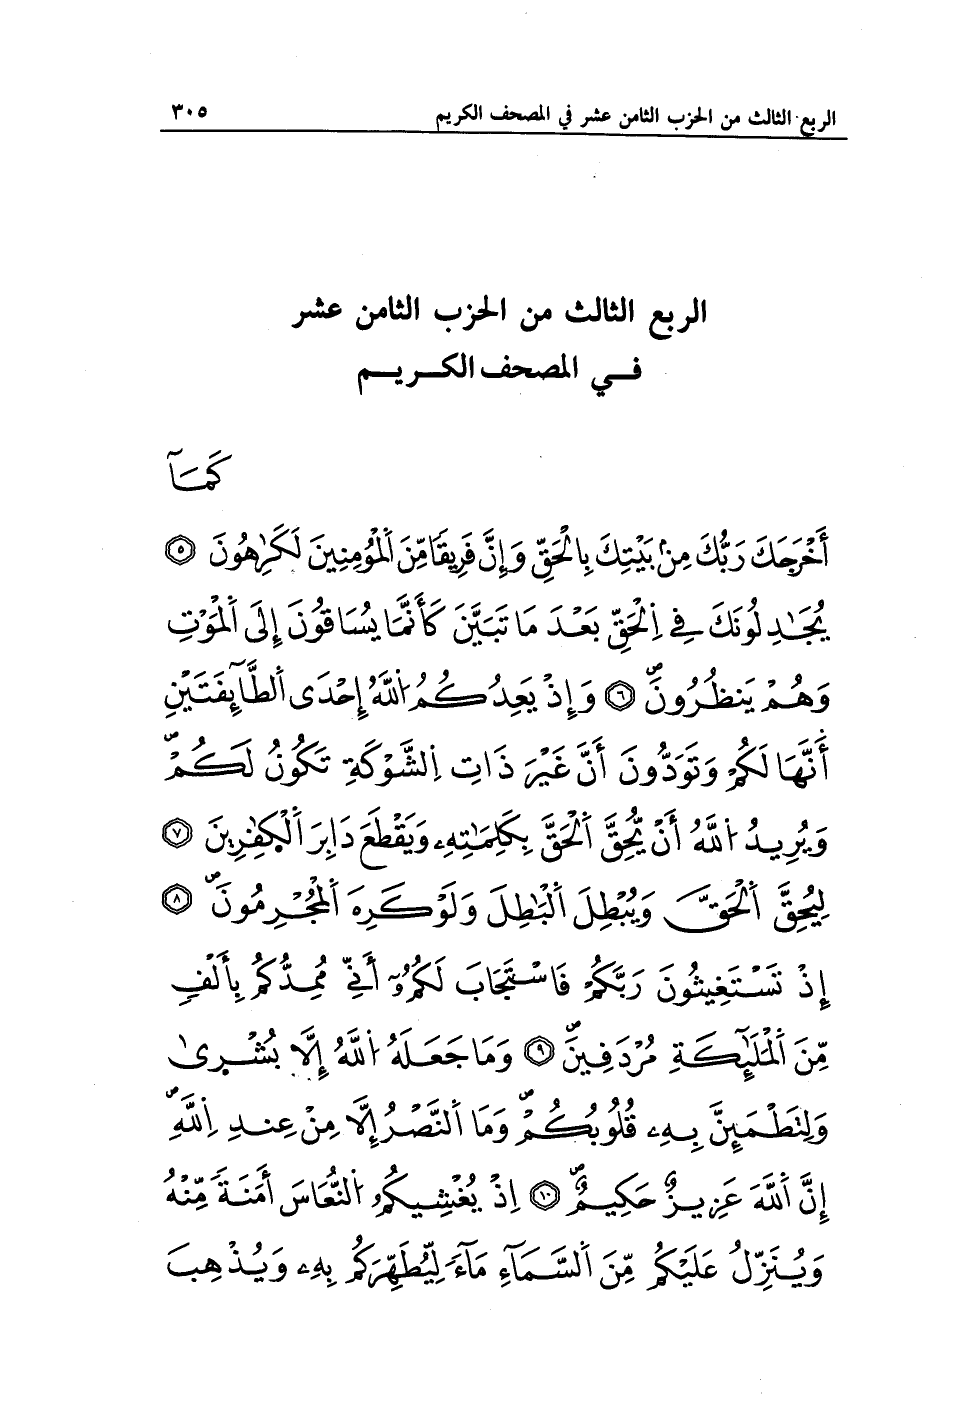 الربع الثالث من الحزب الثامن عشر في المصحف الكريم ٣٠٥
الربع الثالث من الحزب الثامن عشر
في المصحف الكريم
كَمَآ
أَخْرَجَكَ رَبُّكَ مِنۢ بَيْتِكَ بِالْحَقِّ وَإِنَّ فَرِيقاً مِّنَ اَلْمُؤْمِنِينَ لَكَٰرِهُونَ ٥
يُجَٰدِلُونَكَ فِي اِلْحَقِّ بَعْدَ مَا تَبَيَّنَ كَأَنَّمَا يُسَاقُونَ إِلَى اَلْمَوْتِ
وَهُمْ يَنظُرُونَ ٦ وَإِذْ يَعِدُكُمُ اُللَّهُ إِحْدَى اَلطَّآئِفَتَيْنِ
أَنَّهَا لَكُمْ وَتَوَدُّونَ أَنَّ غَيْرَ ذَاتِ اِلشَّوْكَةِ تَكُونُ لَكُمْ
وَيُرِيدُ اُللَّهُ أَنْ يُّحِقَّ اَلْحَقَّ بِكَلِمَٰتِهِۦ وَيَقْطَعَ دَابِرَ اَلْكٰفِرِينَ ٧
لِيُحِقَّ اَلْحَقَّ وَيُبْطِلَ اَلْبَٰطِلَ وَلَوْ كَرِهَ اَلْمُجْرِمُونَ ٨
إِذْ تَسْتَغِيثُونَ رَبَّكُمْ فَاسْتَجَابَ لَكُمُۥٓ أَنِّي مُمِدُّكُم بِأَلْفٍ
مِّنَ اَلْمَلَٰٓئِكَةِ مُرْدَفِينَ ٩ وَمَا جَعَلَهُ اُللَّهُ إِلَّا بُشْرٜىٰ
وَلِتَطْمَئِنَّ بِهِۦ قُلُوبُكُمْ وَمَا اَلنَّصْرُ إِلَّا مِنْ عِندِ اِللَّهِ
إِنَّ اَللَّهَ عَزِيزٌ حَكِيمٌ ١٠ اِذْ يُغْشِيكُمُ اُلنُّعَاسَ أَمَنَةً مِّنْهُ
وَيُنَزِّلُ عَلَيْكُم مِّنَ اَلسَّمَآءِ مَآءً لِّيُطَهِّرَكُم بِهِۦ وَيُذْهِبَ